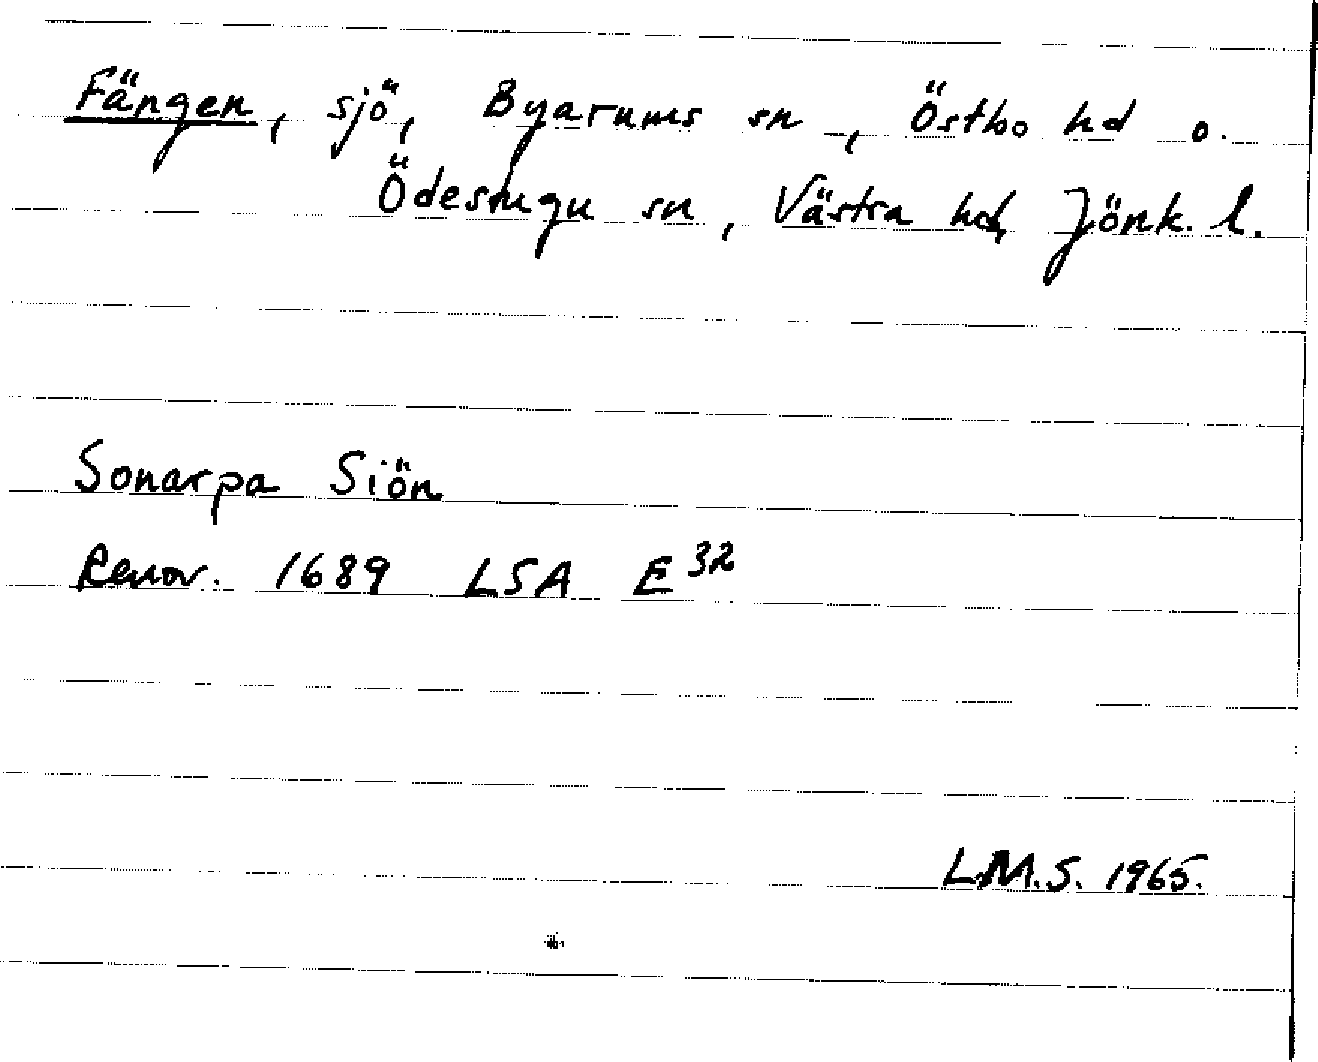 Fängen, sjö, Byarums sn, Östbo hd o.
Ödestugu sn, Västra hd, Jönk. l.
Sonarpa Siön
Renov. 1689 LSA E 32
L.M.S. 1965.